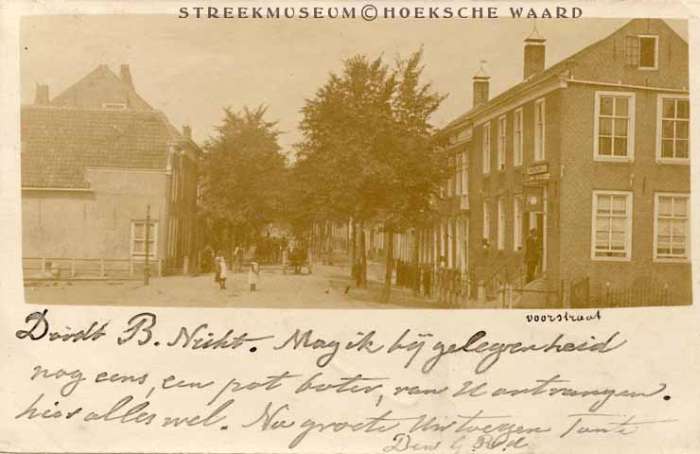 STREEKMUSEUM © HOEKSCHE WAARD
voorstraat
Dordt B. Nicht. Mag ik bij gelegenheid
nog eens, een pot boter, van U ontvangen.
hier alles wel. Na groete Uw Tante